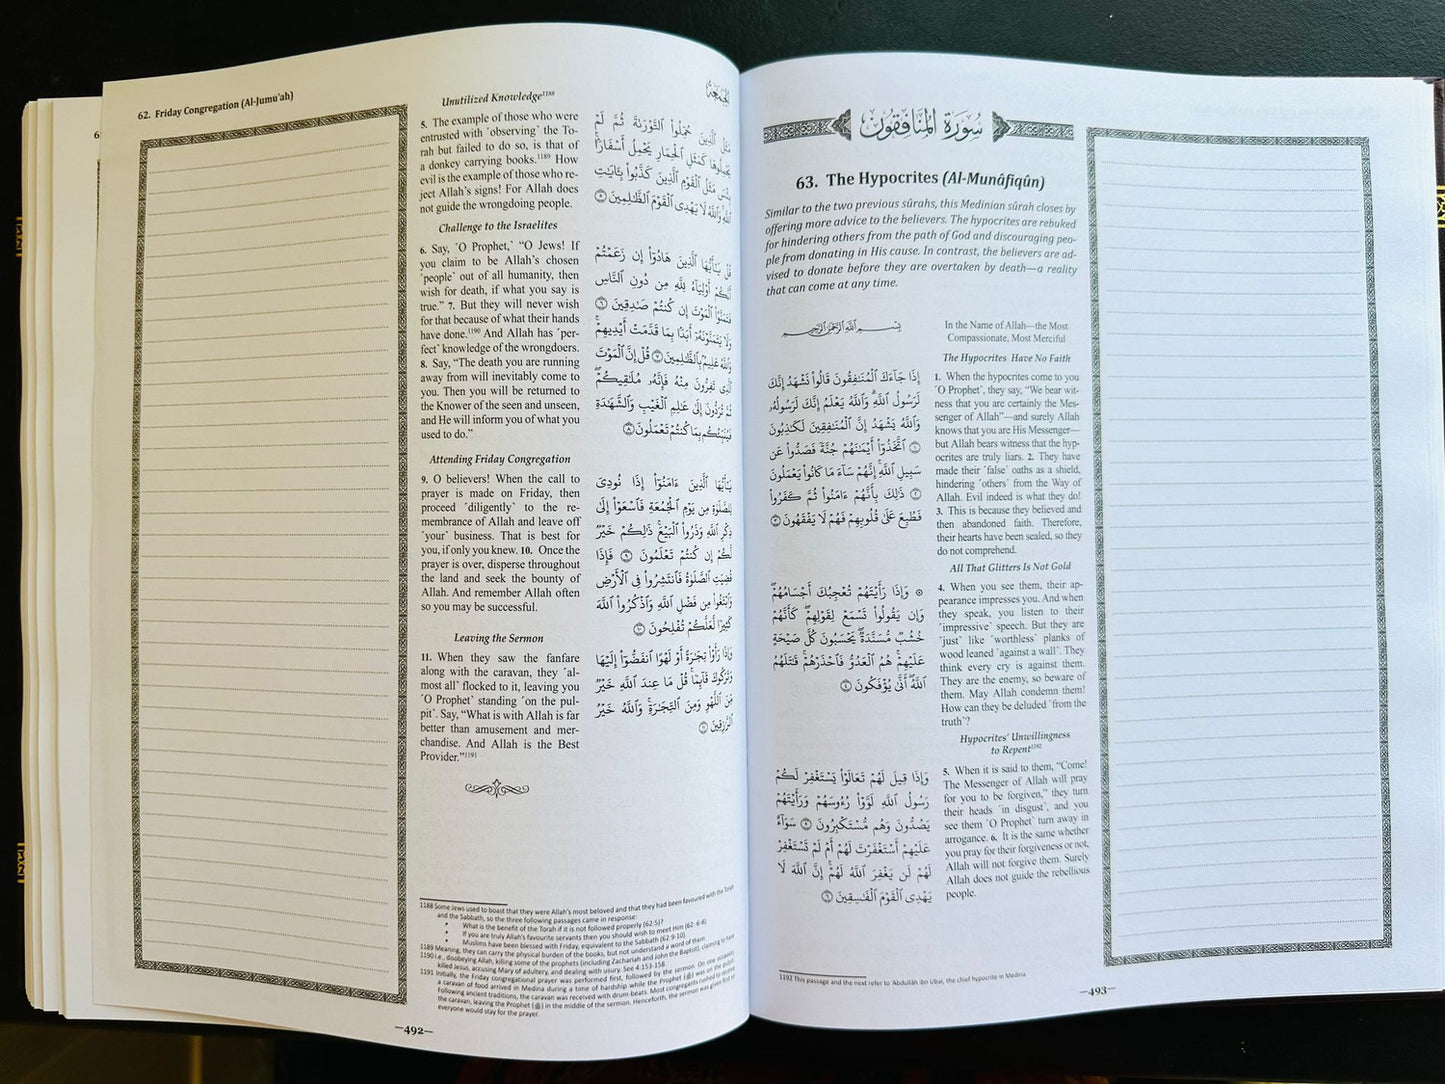 62. Friday Congregation (Al-Jumu'ah)
Unutilized Knowledge1188
5. The example of those who were
entrusted with ˹observing˺ the To-
rah but failed to do so, is that of
a donkey carrying books.1189 How
evil is the example of those who re-
ject Allah's signs! For Allah does
not guide the wrongdoing people.
Challenge to the Israelites
6. Say, ˹O Prophet,˺ “O Jews! If
you claim to be Allah's chosen
˹people˺ out of all humanity, then
wish for death, if what you say is
true.” 7. But they will never wish
for that because of what their hands
have done.1190 And Allah has ˹per-
fect˺ knowledge of the wrongdoers.
8. Say, “The death you are running
away from will inevitably come to
you. Then you will be returned to
the Knower of the seen and unseen,
and He will inform you of what you
used to do.”
Attending Friday Congregation
9. O believers! When the call to
prayer is made on Friday, then
proceed ˹diligently˺ to the re-
membrance of Allah and leave off
˹your˺ business. That is best for
you, if only you knew. 10. Once the
prayer is over, disperse throughout
the land and seek the bounty of
Allah. And remember Allah often
so you may be successful.
Leaving the Sermon
11. When they saw the fanfare
along with the caravan, they ˹al-
most all˺ flocked to it, leaving you
˹O Prophet˺ standing ˹on the pul-
pit˺. Say, “What is with Allah is far
better than amusement and mer-
chandise. And Allah is the Best
Provider.”1191
الجمعة
مَثَلُ ٱلَّذِينَ حُمِّلُوا۟ ٱلتَّوْرَىٰةَ ثُمَّ لَمْ
يَحْمِلُوهَا كَمَثَلِ ٱلْحِمَارِ يَحْمِلُ أَسْفَارًۢا
بِئْسَ مَثَلُ ٱلْقَوْمِ ٱلَّذِينَ كَذَّبُوا۟ بِـَٔايَـٰتِ
ٱللَّهِ وَٱللَّهُ لَا يَهْدِى ٱلْقَوْمَ ٱلظَّـٰلِمِينَ ٥
قُلْ يَـٰٓأَيُّهَا ٱلَّذِينَ هَادُوٓا۟ إِن زَعَمْتُمْ
أَنَّكُمْ أَوْلِيَآءُ لِلَّهِ مِن دُونِ ٱلنَّاسِ
فَتَمَنَّوُا۟ ٱلْمَوْتَ إِن كُنتُمْ صَـٰدِقِينَ ٦
وَلَا يَتَمَنَّوْنَهُۥٓ أَبَدًۢا بِمَا قَدَّمَتْ أَيْدِيهِمْ
وَٱللَّهُ عَلِيمٌۢ بِٱلظَّـٰلِمِينَ ٧ قُلْ إِنَّ ٱلْمَوْتَ
ٱلَّذِى تَفِرُّونَ مِنْهُ فَإِنَّهُۥ مُلَـٰقِيكُمْ
ثُمَّ تُرَدُّونَ إِلَىٰ عَـٰلِمِ ٱلْغَيْبِ وَٱلشَّهَـٰدَةِ
فَيُنَبِّئُكُم بِمَا كُنتُمْ تَعْمَلُونَ ٨
يَـٰٓأَيُّهَا ٱلَّذِينَ ءَامَنُوٓا۟ إِذَا نُودِىَ
لِلصَّلَوٰةِ مِن يَوْمِ ٱلْجُمُعَةِ فَٱسْعَوْا۟ إِلَىٰ
ذِكْرِ ٱللَّهِ وَذَرُوا۟ ٱلْبَيْعَ ذَٰلِكُمْ خَيْرٌ
لَّكُمْ إِن كُنتُمْ تَعْلَمُونَ ٩ فَإِذَا
قُضِيَتِ ٱلصَّلَوٰةُ فَٱنتَشِرُوا۟ فِى ٱلْأَرْضِ
وَٱبْتَغُوا۟ مِن فَضْلِ ٱللَّهِ وَٱذْكُرُوا۟ ٱللَّهَ
كَثِيرًا لَّعَلَّكُمْ تُفْلِحُونَ ١٠
وَإِذَا رَأَوْا۟ تِجَـٰرَةً أَوْ لَهْوًا ٱنفَضُّوٓا۟ إِلَيْهَا
وَتَرَكُوكَ قَآئِمًا قُلْ مَا عِندَ ٱللَّهِ خَيْرٌ
مِّنَ ٱللَّهْوِ وَمِنَ ٱلتِّجَـٰرَةِ وَٱللَّهُ خَيْرُ
ٱلرَّٰزِقِينَ ١١
1188 Some Jews used to boast that they were Allah's most beloved and that they had been favoured with the Torah
and the Sabbath, so the three following passages came in response:
• What is the benefit of the Torah if it is not followed properly (62:5)?
• If you are truly Allah's favourite servants then you should wish to meet Him (62: 6-8)
• Muslims have been blessed with Friday, equivalent to the Sabbath (62:9-10).
1189 Meaning, they can carry the physical burden of the books, but not understand a word of them.
1190 i.e., disobeying Allah, killing some of the prophets (including Zachariah and John the Baptist), claiming to have
killed Jesus, accusing Mary of adultery, and dealing with usury. See 4:153-158.
1191 Initially, the Friday congregational prayer was performed first, followed by the sermon. On one occasion,
a caravan of food arrived in Medina during a time of hardship while the Prophet (ﷺ) was on the pulpit.
Following ancient traditions, the caravan was received with drum beats. Most congregants rushed to receive
the caravan, leaving the Prophet (ﷺ) in the middle of the sermon. Henceforth, the sermon was given first so
everyone would stay for the prayer.
—492—
سُورَةُ المُنَافِقُون
63. The Hypocrites (Al-Munâfiqûn)
Similar to the two previous sûrahs, this Medinian sûrah closes by
offering more advice to the believers. The hypocrites are rebuked
for hindering others from the path of God and discouraging peo-
ple from donating in His cause. In contrast, the believers are ad-
vised to donate before they are overtaken by death—a reality
that can come at any time.
بِسْمِ ٱللَّهِ ٱلرَّحْمَـٰنِ ٱلرَّحِيمِ
إِذَا جَآءَكَ ٱلْمُنَـٰفِقُونَ قَالُوا۟ نَشْهَدُ إِنَّكَ
لَرَسُولُ ٱللَّهِ وَٱللَّهُ يَعْلَمُ إِنَّكَ لَرَسُولُهُۥ
وَٱللَّهُ يَشْهَدُ إِنَّ ٱلْمُنَـٰفِقِينَ لَكَـٰذِبُونَ
١ ٱتَّخَذُوٓا۟ أَيْمَـٰنَهُمْ جُنَّةً فَصَدُّوا۟ عَن
سَبِيلِ ٱللَّهِ إِنَّهُمْ سَآءَ مَا كَانُوا۟ يَعْمَلُونَ
٢ ذَٰلِكَ بِأَنَّهُمْ ءَامَنُوا۟ ثُمَّ كَفَرُوا۟
فَطُبِعَ عَلَىٰ قُلُوبِهِمْ فَهُمْ لَا يَفْقَهُونَ ٣
۞ وَإِذَا رَأَيْتَهُمْ تُعْجِبُكَ أَجْسَامُهُمْ
وَإِن يَقُولُوا۟ تَسْمَعْ لِقَوْلِهِمْ كَأَنَّهُمْ
خُشُبٌ مُّسَنَّدَةٌ يَحْسَبُونَ كُلَّ صَيْحَةٍ
عَلَيْهِمْ هُمُ ٱلْعَدُوُّ فَٱحْذَرْهُمْ قَـٰتَلَهُمُ
ٱللَّهُ أَنَّىٰ يُؤْفَكُونَ ٤
وَإِذَا قِيلَ لَهُمْ تَعَالَوْا۟ يَسْتَغْفِرْ لَكُمْ
رَسُولُ ٱللَّهِ لَوَّوْا۟ رُءُوسَهُمْ وَرَأَيْتَهُمْ
يَصُدُّونَ وَهُم مُّسْتَكْبِرُونَ ٥ سَوَآءٌ
عَلَيْهِمْ أَسْتَغْفَرْتَ لَهُمْ أَمْ لَمْ تَسْتَغْفِرْ
لَهُمْ لَن يَغْفِرَ ٱللَّهُ لَهُمْ إِنَّ ٱللَّهَ لَا
يَهْدِى ٱلْقَوْمَ ٱلْفَـٰسِقِينَ ٦
In the Name of Allah—the Most
Compassionate, Most Merciful
The Hypocrites Have No Faith
1. When the hypocrites come to you
˹O Prophet˺, they say, “We bear wit-
ness that you are certainly the Mes-
senger of Allah”—and surely Allah
knows that you are His Messenger—
but Allah bears witness that the hyp-
ocrites are truly liars. 2. They have
made their ˹false˺ oaths as a shield,
hindering ˹others˺ from the Way of
Allah. Evil indeed is what they do!
3. This is because they believed and
then abandoned faith. Therefore,
their hearts have been sealed, so they
do not comprehend.
All That Glitters Is Not Gold
4. When you see them, their ap-
pearance impresses you. And when
they speak, you listen to their
˹impressive˺ speech. But they are
˹just˺ like ˹worthless˺ planks of
wood leaned ˹against a wall˺. They
think every cry is against them.
They are the enemy, so beware of
them. May Allah condemn them!
How can they be deluded ˹from the
truth˺?
Hypocrites' Unwillingness
to Repent1192
5. When it is said to them, “Come!
The Messenger of Allah will pray
for you to be forgiven,” they turn
their heads ˹in disgust˺, and you
see them ˹O Prophet˺ turn away in
arrogance. 6. It is the same whether
you pray for their forgiveness or not,
Allah will not forgive them. Surely
Allah does not guide the rebellious
people.
1192 This passage and the next refer to 'Abdullâh ibn Ubai, the chief hypocrite in Medina.
—493—